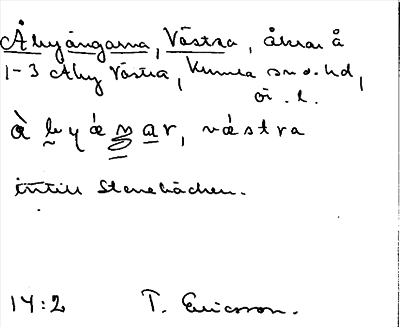 Åbyängarna, Västra, åkrar å
1-3 Aby Västra, Kumla sn o. hd,
ö. l.
à byáŋar, vástra
intill Stenebäcken.
14:2 T. Ericsson.